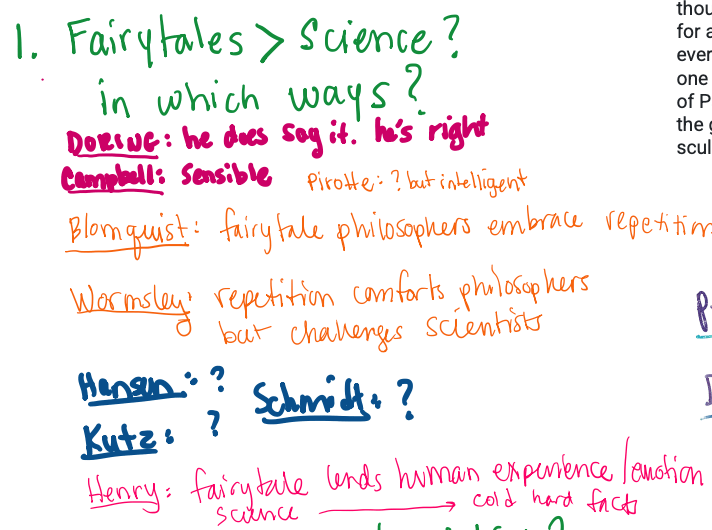 1. Fairytales > Science?
in which ways?
DORING: he does say it. he's right
Campbell: Sensible
Pirotte: ? but intelligent
Blomquist: fairytale philosophers embrace repetition
Wormsley: repetition comforts philosophers
but challenges scientists
Hansen: ?
Schmidt: ?
Kutz: ?
Henry: fairytale lends human experience/emotion
science → cold hard facts
thou
for a
ever
one
of P
the g
scul